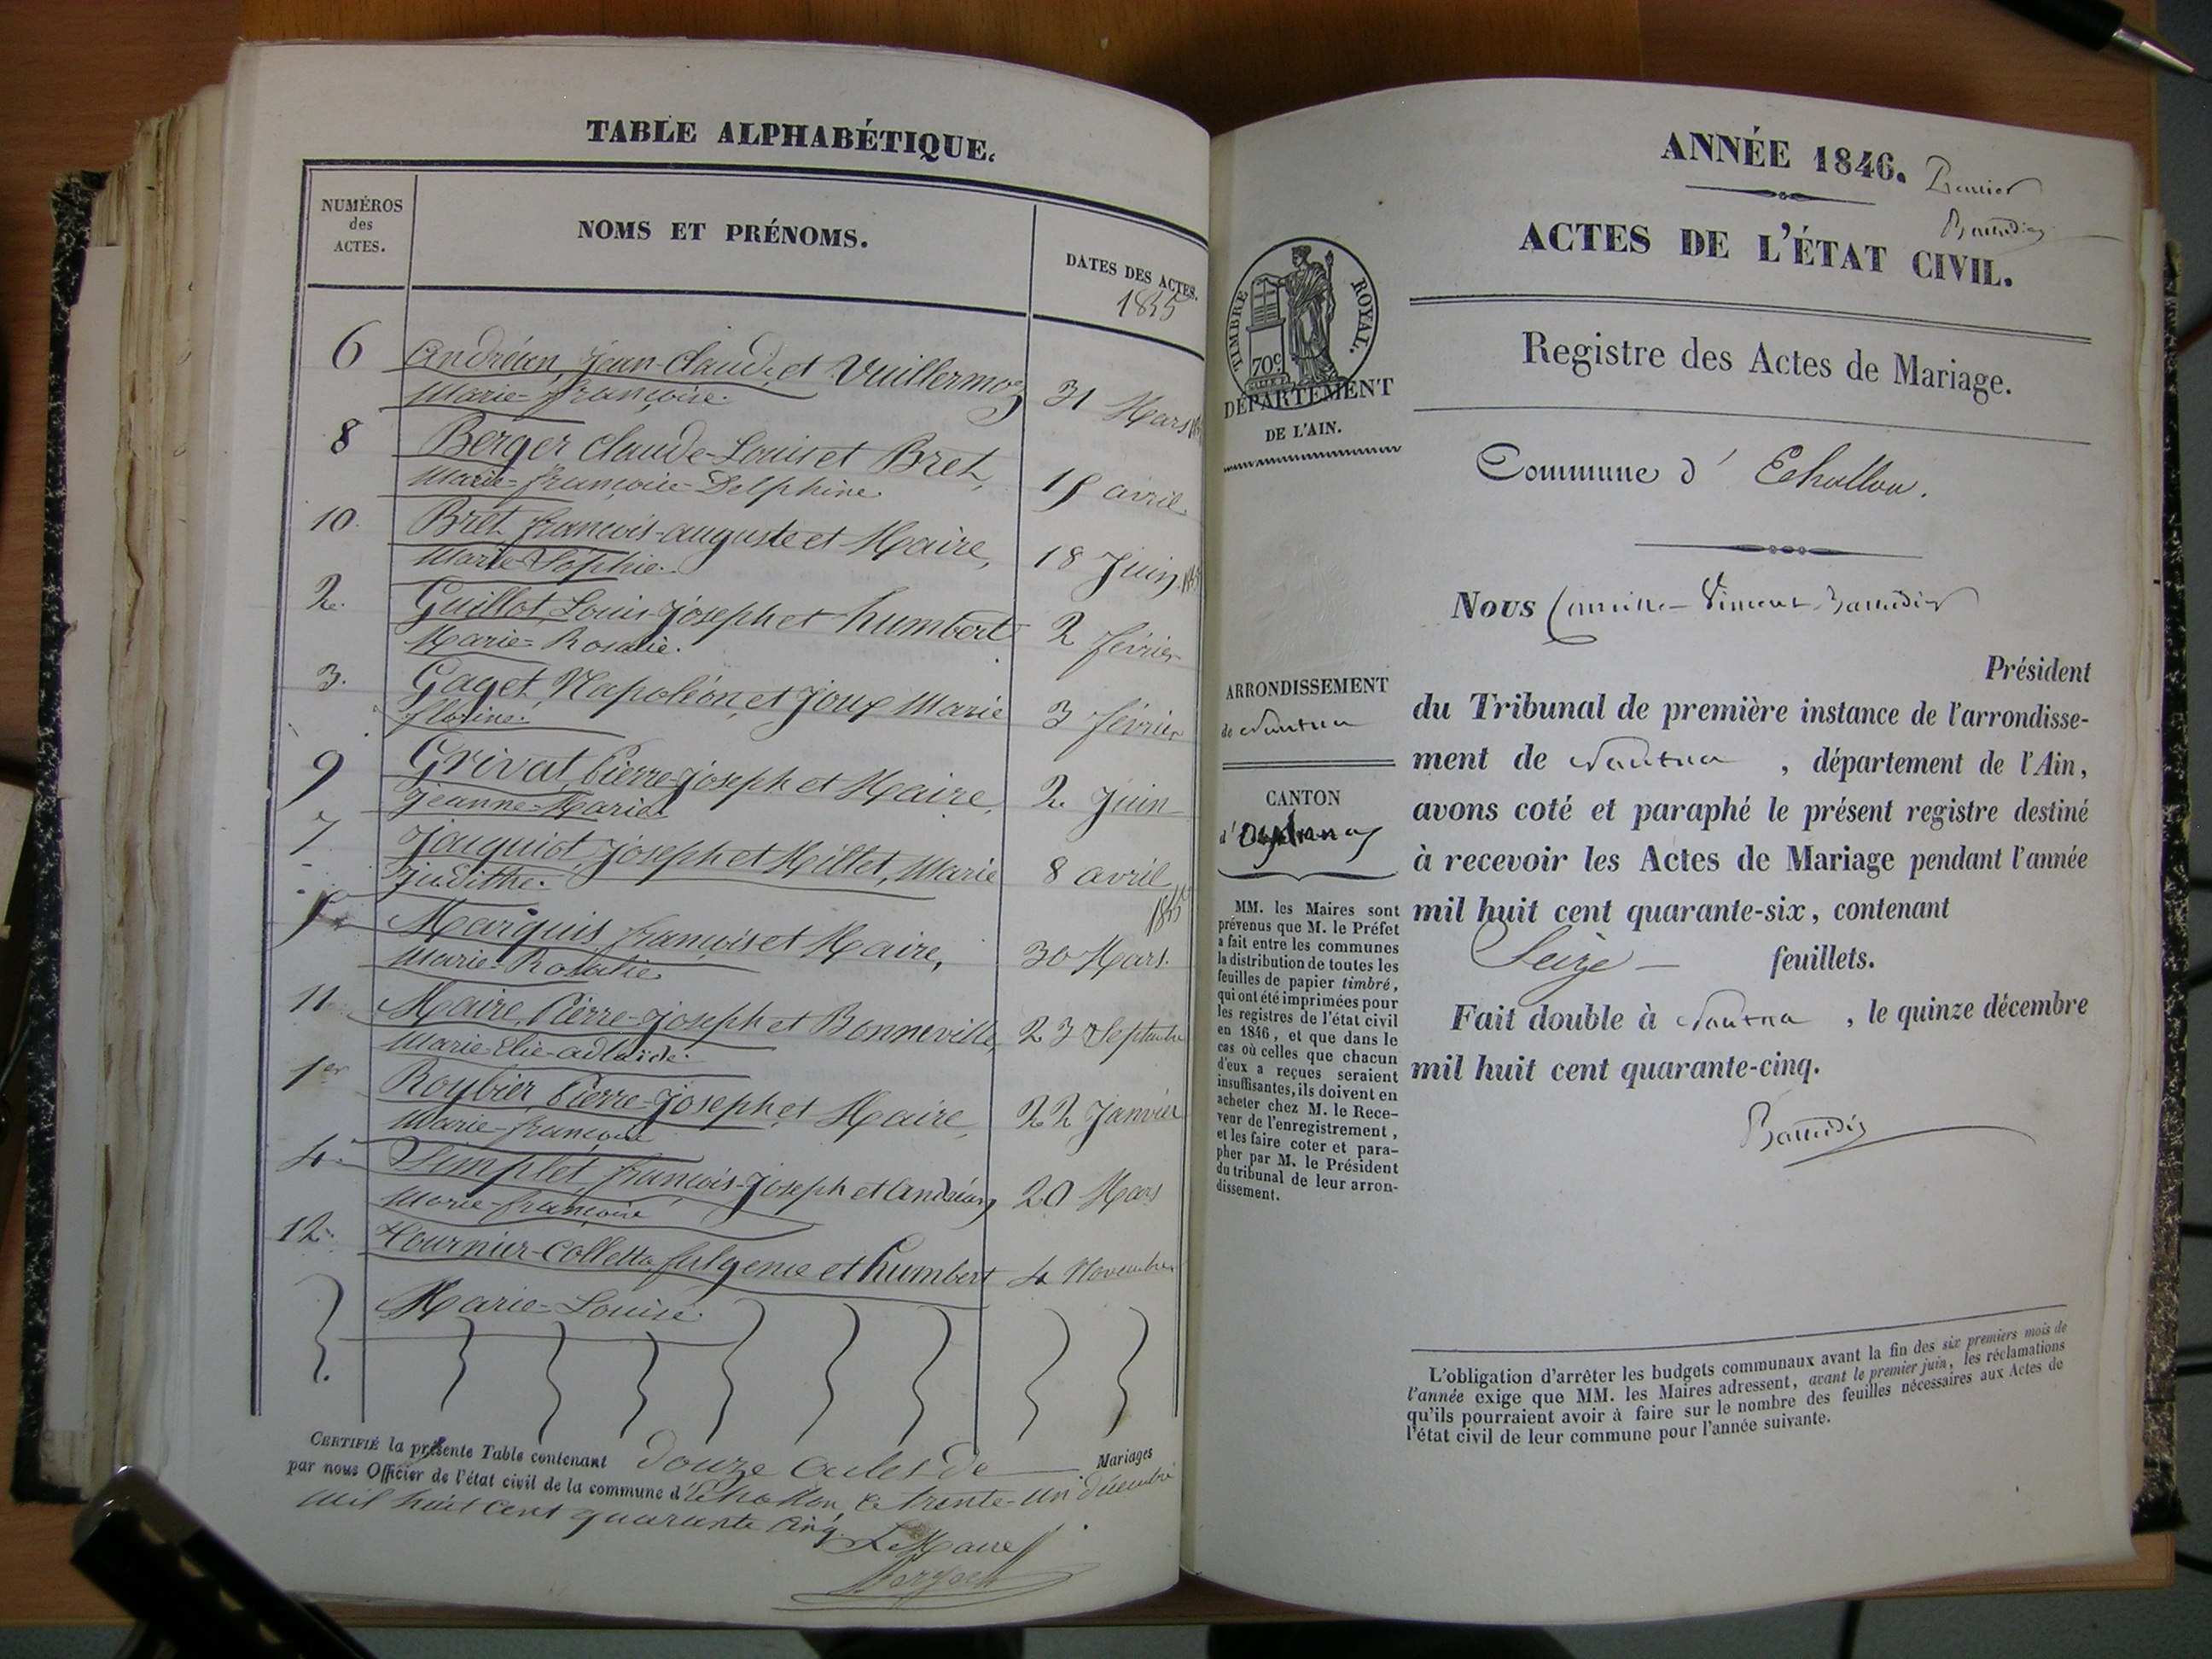 TABLE ALPHABÉTIQUE.
NUMÉROS
des
ACTES.
NOMS ET PRÉNOMS.
DATES DES ACTES.
1845
6 Andréan, Jean-Claude, et Vuillermoz 31 Mars
Marie-françoise.
8 Berger Claude-Louis et Bret, 15 avril
Marie-françoise-Delphine.
10. Bret françois-auguste et Maire, 18 Juin
Marie-Sophie.
2. Guillot, Louis-joseph et humbert 2 février
Marie-Rosalie.
3. Gaget, Napoléon, et Joux Marie 3 février
florine.
9 Grivat, Pierre-joseph et Maire, 2 Juin
Jeanne-Marie.
7 Jauquiot, Joseph et Millet, Marie 8 avril
Judithe.
1845
5 Marquis, françois et Maire, 30 Mars.
Marie-Rosalie.
11. Maire, Pierre-joseph et Bonneville, 23 Septembre
Marie-Elie-adlaïde.
1er Roybier Pierre-Joseph et Maire, 22 Janvier
Marie-françoise
4. Simplet françois-Joseph et Andréan 20 Mars
Marie-françoise
12. Tournier-Colletta fulgence et humbert 4 Novembre
Marie-Louise.
CERTIFIÉ la présente Table contenant douze actes de Mariages
par nous Officier de l'état civil de la commune d'Echallon, le trente-un décembre
mil huit cent quarante cinq.
Le Maire
ANNÉE 1846.
Premier
Baudin
ACTES DE L'ÉTAT CIVIL.
Registre des Actes de Mariage.
TIMBRE ROYAL.
70c
DÉPARTEMENT
DE L'AIN.
Commune d' Echallon.
Nous Camille-Vincent Baudin
Président
du Tribunal de première instance de l'arrondisse-
ment de Nantua , département de l'Ain,
avons coté et paraphé le présent registre destiné
à recevoir les Actes de Mariage pendant l'année
mil huit cent quarante-six, contenant
Seize feuillets.
Fait double à Nantua , le quinze décembre
mil huit cent quarante-cinq.
Baudin
ARRONDISSEMENT
de Nantua
CANTON
d'Oyonnax
MM. les Maires sont
prévenus que M. le Préfet
a fait entre les communes
la distribution de toutes les
feuilles de papier timbré,
qui ont été imprimées pour
les registres de l'état civil
en 1846, et que dans le
cas où celles que chacun
d'eux a reçues seraient
insuffisantes, ils doivent en
acheter chez M. le Rece-
veur de l'enregistrement,
et les faire coter et para-
pher par M. le Président
du tribunal de leur arron-
dissement.
L'obligation d'arrêter les budgets communaux avant la fin des six premiers mois de
l'année exige que MM. les Maires adressent, avant le premier juin, les réclamations
qu'ils pourraient avoir à faire sur le nombre des feuilles nécessaires aux Actes de
l'état civil de leur commune pour l'année suivante.